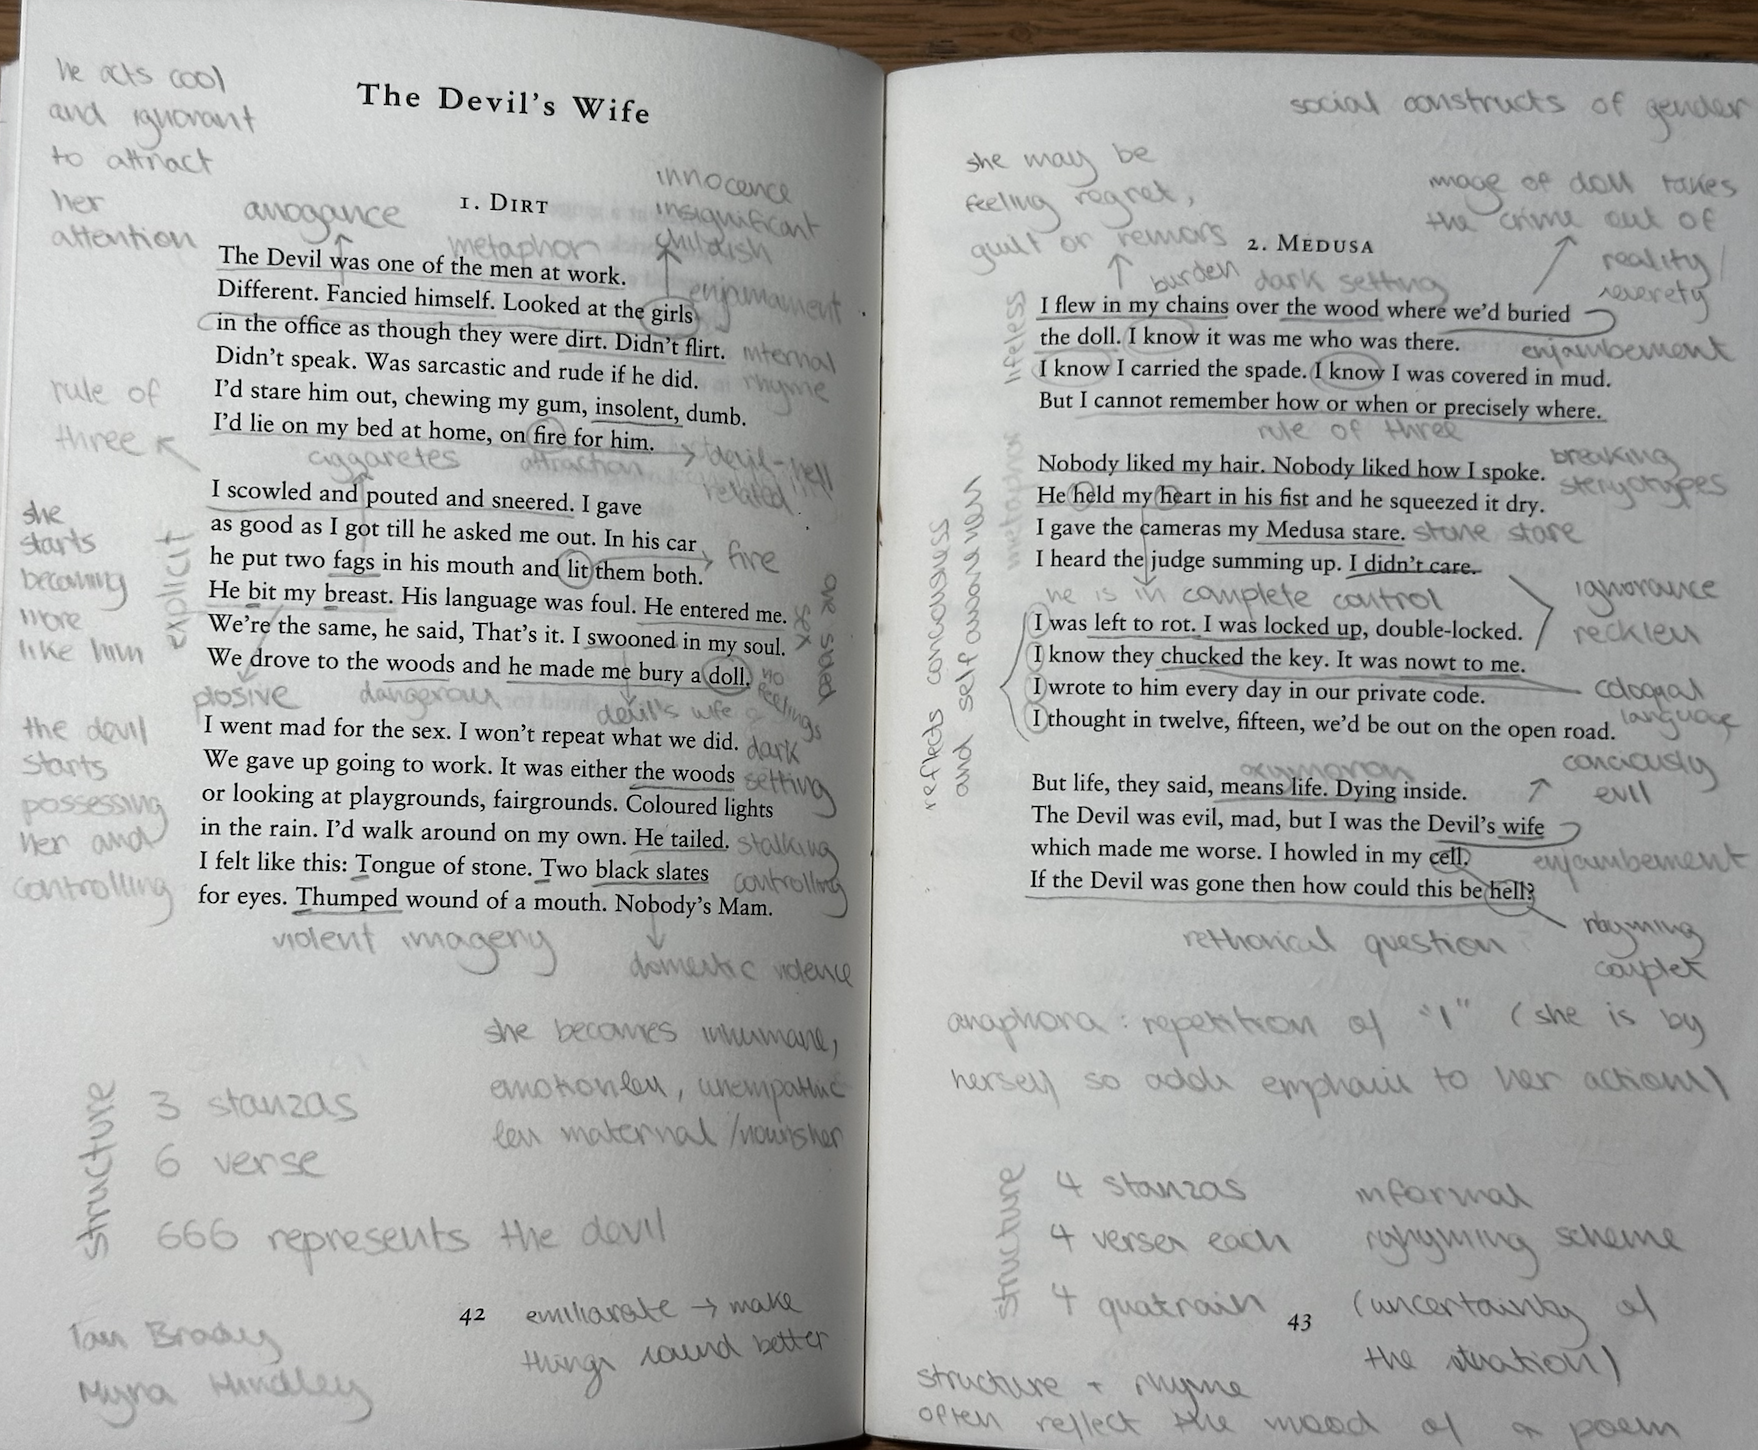 he acts cool
and ignorant
to attract
her
attention
The Devil's Wife
1. DIRT
arrogance
metaphor
innocence
insignificant
childish
enjamament
The Devil was one of the men at work.
Different. Fancied himself. Looked at the girls
in the office as though they were dirt. Didn't flirt.
internal
rhyme
Didn't speak. Was sarcastic and rude if he did.
I'd stare him out, chewing my gum, insolent, dumb.
I'd lie on my bed at home, on fire for him.
rule of
three
ciggaretes
attraction
devil-hell
related
I scowled and pouted and sneered. I gave
as good as I got till he asked me out. In his car
he put two fags in his mouth and lit them both.
fire
He bit my breast. His language was foul. He entered me.
We're the same, he said, That's it. I swooned in my soul.
We drove to the woods and he made me bury a doll.
she
starts
becoming
more
like him
explicit
one sided
sex
plosive
dangerous
devil's wife
no
feelings
I went mad for the sex. I won't repeat what we did.
We gave up going to work. It was either the woods
or looking at playgrounds, fairgrounds. Coloured lights
in the rain. I'd walk around on my own. He tailed.
I felt like this: Tongue of stone. Two black slates
for eyes. Thumped wound of a mouth. Nobody's Mam.
dark
setting
stalking
controlling
the devil
starts
possessing
her and
controlling
violent imagery
domestic violence
she becomes inhumane,
emotionless, unempathic
less maternal /nourisher
structure
3 stanzas
6 verse
666 represents the devil
42
emiliarate → make
things sound better
Ian Brady
Myra Hindley
social constructs of gender
she may be
feeling regret,
guilt or remors
image of doll takes
the crime out of
reality/
2. MEDUSA
burden
dark setting
I flew in my chains over the wood where we'd buried
the doll. I know it was me who was there.
enjambement
I know I carried the spade. I know I was covered in mud.
But I cannot remember how or when or precisely where.
lifeless
rule of three
Nobody liked my hair. Nobody liked how I spoke.
He held my heart in his fist and he squeezed it dry.
I gave the cameras my Medusa stare.
stone stare
I heard the judge summing up. I didn't care.
breaking
steryotypes
metaphor
he is in complete control
ignorance
reckless
I was left to rot. I was locked up, double-locked.
I know they chucked the key. It was nowt to me.
I wrote to him every day in our private code.
I thought in twelve, fifteen, we'd be out on the open road.
reflects conciousness
and self awareness
coloqual
language
conciously
evil
oxymoron
But life, they said, means life. Dying inside.
The Devil was evil, mad, but I was the Devil's wife
which made me worse. I howled in my cell.
If the Devil was gone then how could this be hell?
enjambement
rhyming
couplet
rethorical question
anaphora : repetition of "I" (she is by
herself so adds emphasis to her actions)
structure
4 stanzas
4 verses each
4 quatrain
informal
ryhyming scheme
(uncertainty of
the situation)
43
structure + rhyme
often reflect the mood of a poem